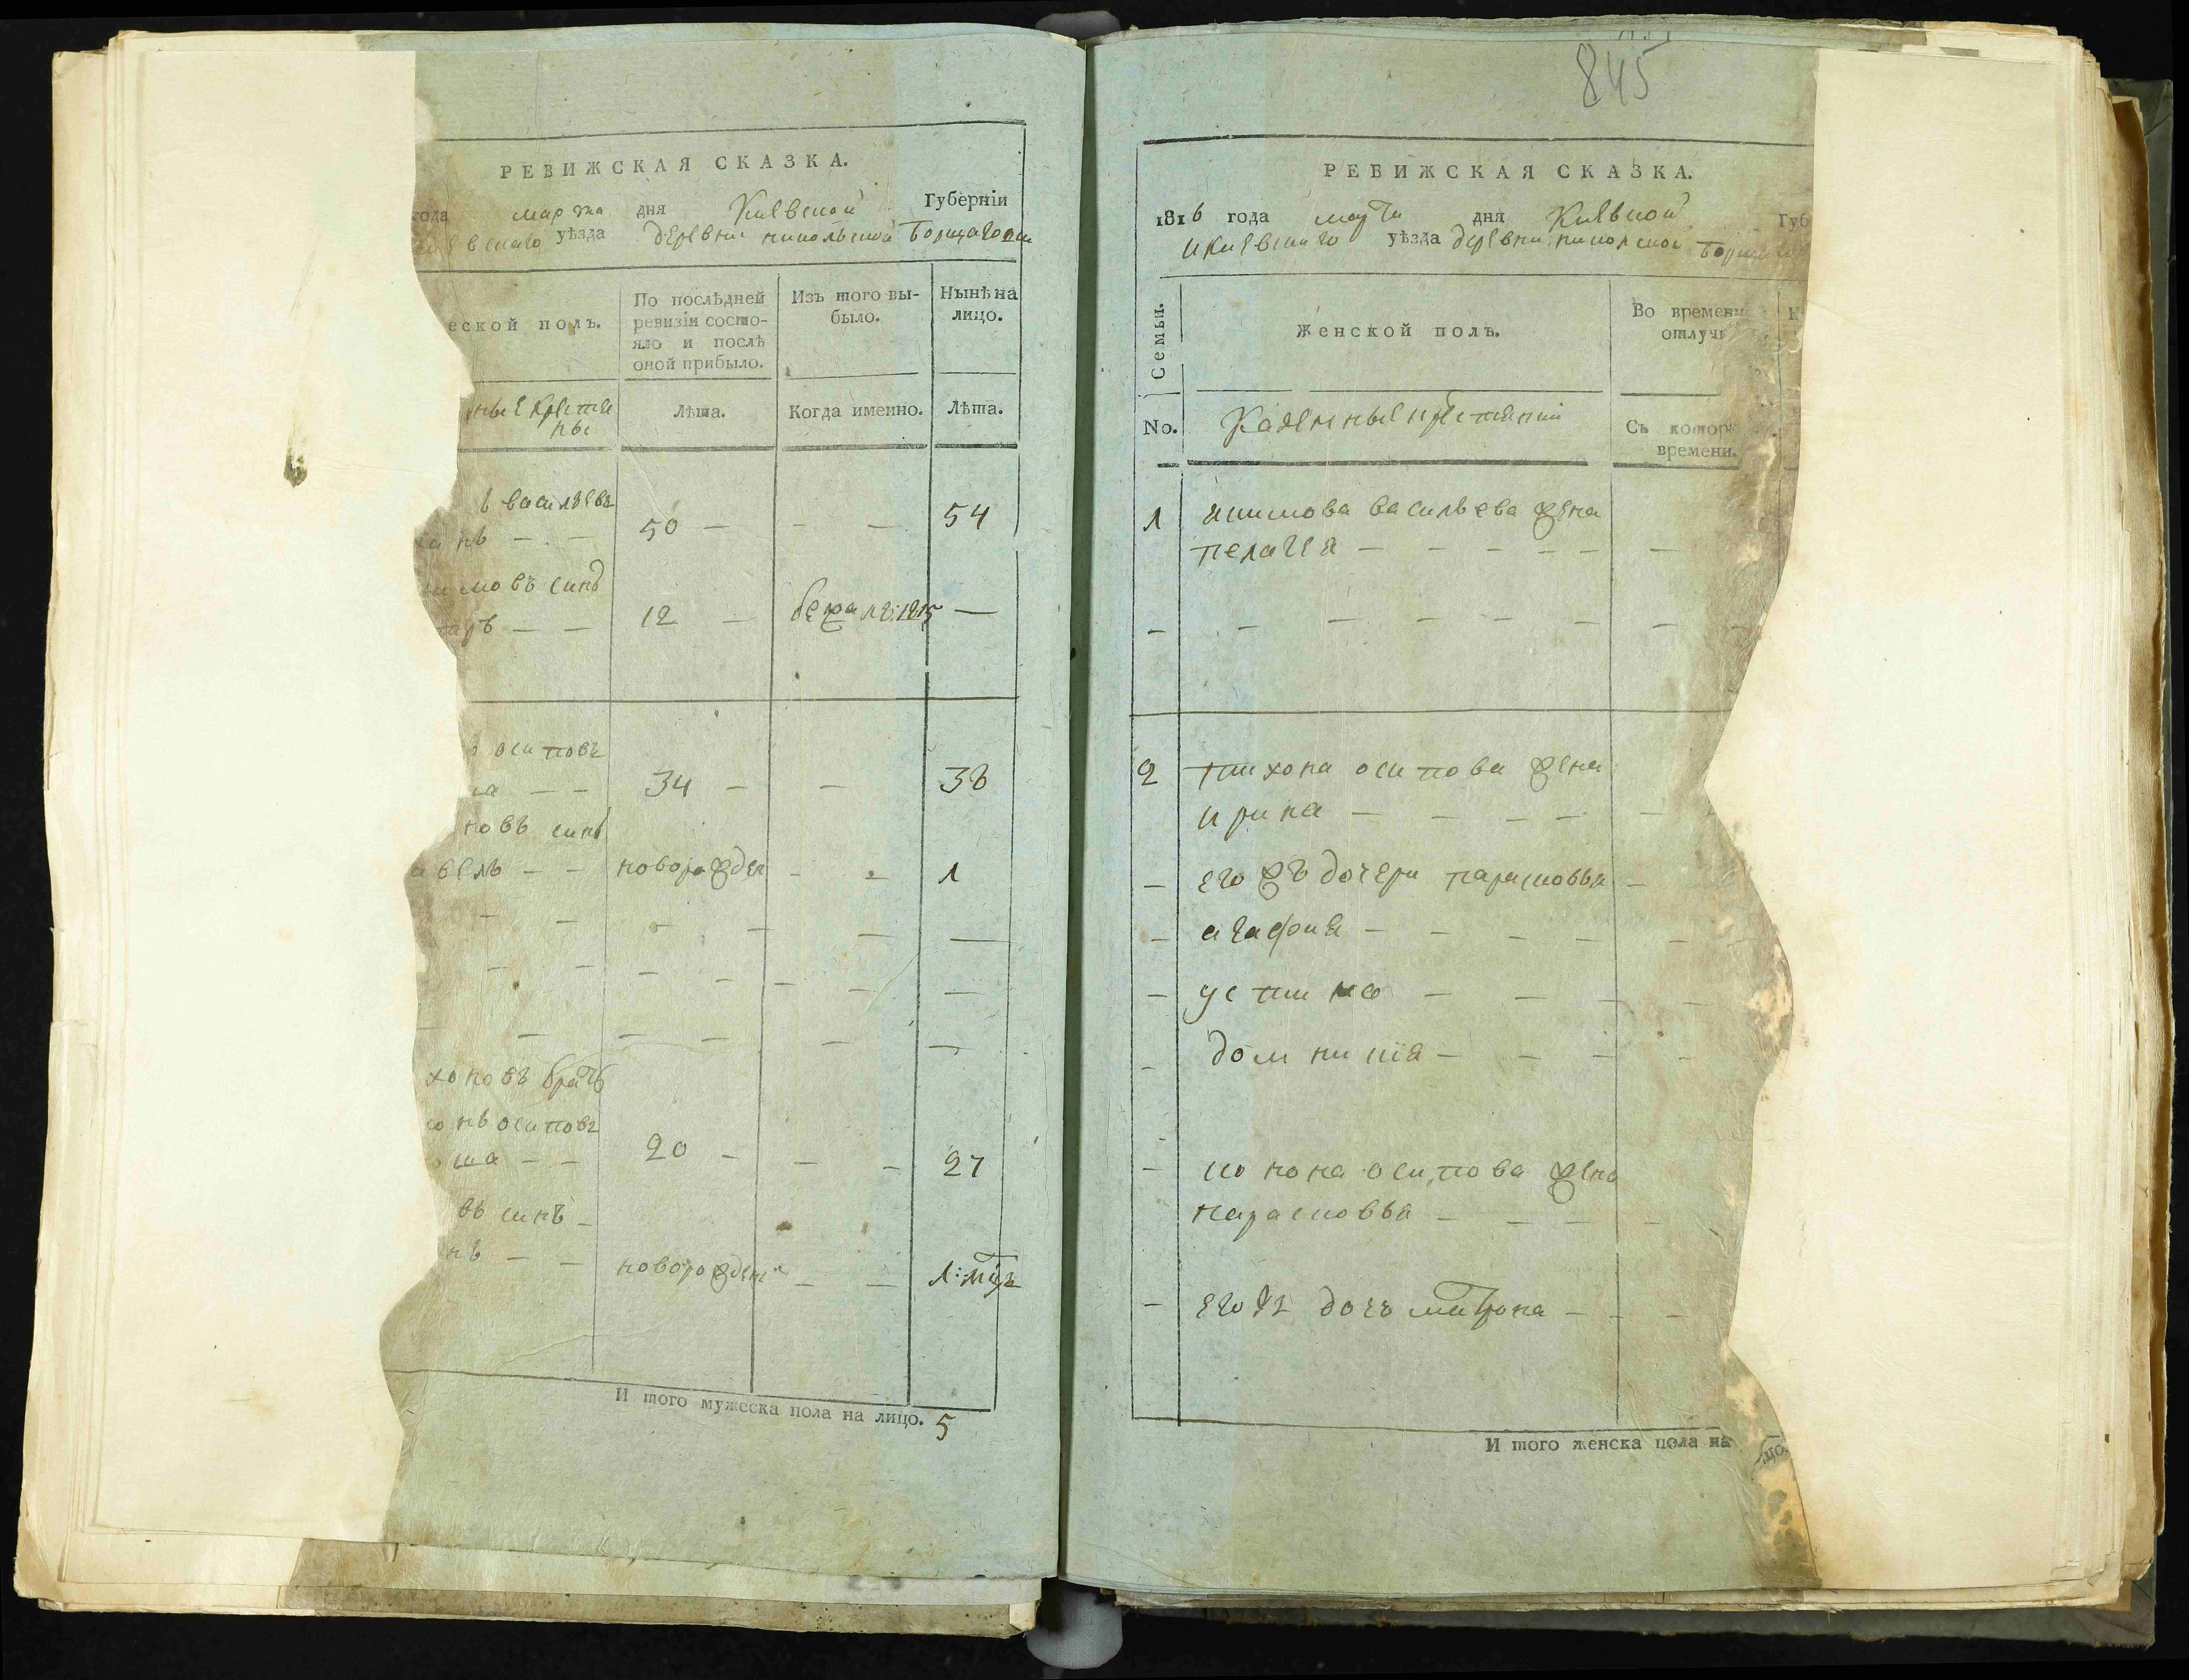 РЕВИЖСКАЯ СКАЗКА.
года марта дня Киевской Губерніи
уѣзда деревни никольской Борщаговки
еской полъ.
По послѣдней ревизіи состо-
яло и послѣ
оной прибыло.
Изъ того вы-
было.
Нынѣ на
лицо.
ные крестья
ны
Лѣта.
Когда именно.
Лѣта.
ъ васильевъ
50 — — — 54
имовъ синъ
12 — бежалъ: 1815 —
осиповъ
34 — — 38
новъ синъ
велъ — — новорожден — — 1
хоновъ братъ
нъ осиповъ
20 — — — 27
въ синъ —
нъ — — новорожден — — 1: мцъ
И того мужеска пола на лицо. 5
845
РЕВИЖСКАЯ СКАЗКА.
1816 года марта дня Киевской Губ
уѣзда деревни никольской
Семьи.
Женской полъ.
Во времени
отлуч
No.
Казенные крестяни
Съ котор
времени.
1 якимова васильева жена
пелагея — — — — — —
2 тихона осипова жена
ирина — — — — —
— его жъ дочери парасковья —
— агафия — — — — —
— устина — — — —
— домникия — — — —
— конона осипова жена
парасковья — — — —
— его жъ дочъ матрона — — —
И того женска пола на